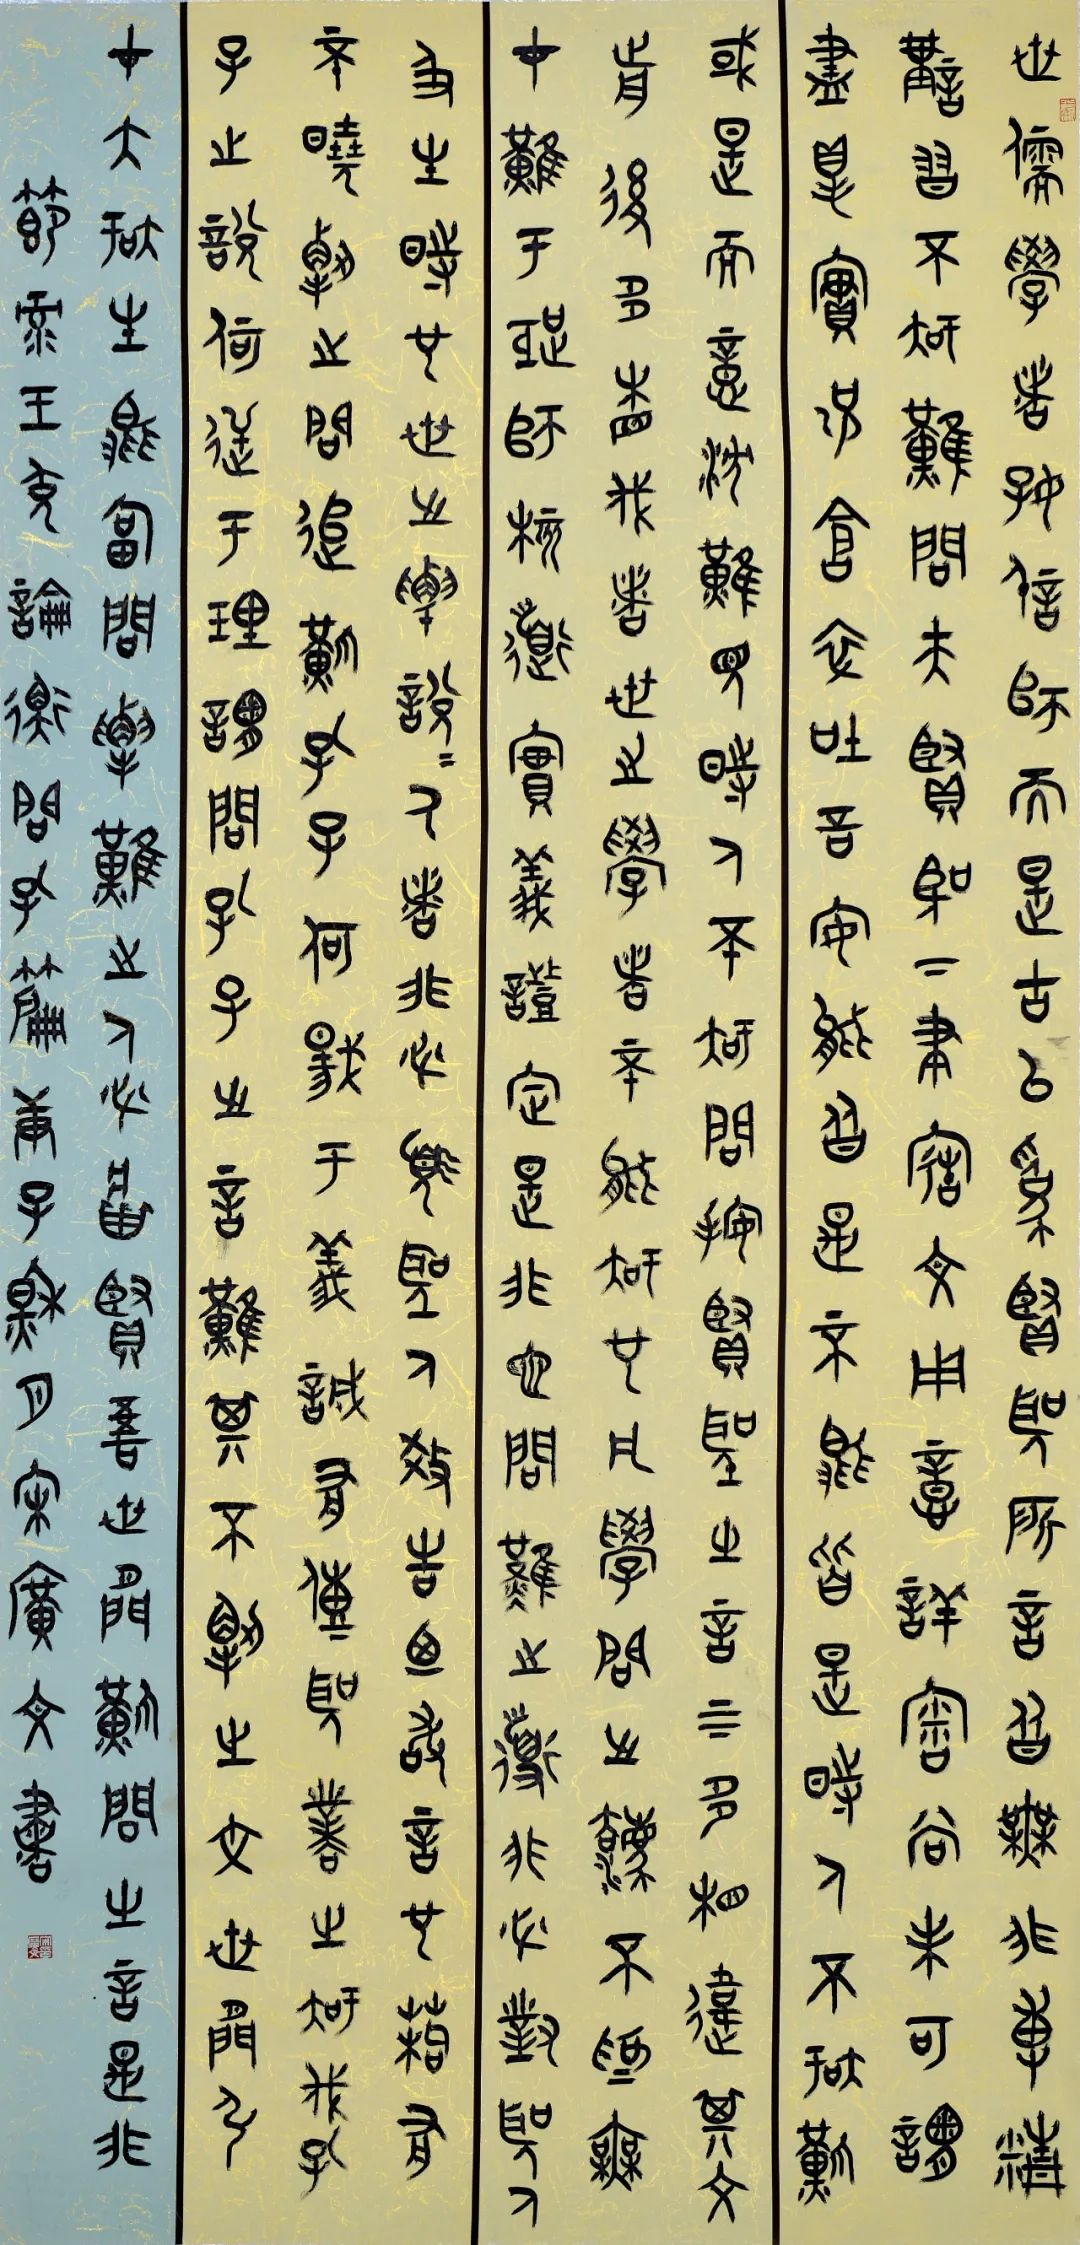 世儒學者好信師而是古以為賢聖所言皆無非專精
講習不知難問夫賢聖下筆造文用意詳審尚未可謂
盡得實況倉卒吐言安能皆是不能皆是時人不知難
或是而意沉難見時人不知問案賢聖之言上下多相違其文
前後多相伐者世之學者不能知也凡學問之法不為無
才難于距師核道實義證定是非也問難之道非必對聖人
及生時也世之解說說人者非必須聖人教告乃敢言也苟有
不曉解之問追難孔子何傷于義誠有傳聖業之知伐孔
子之說何逆于理謂問孔子之言難其不解之文世間弘
才大知生能答問解難之人必將賢吾世間難問之言是非
節录王充論衡問孔篇庚子月宋廣文書